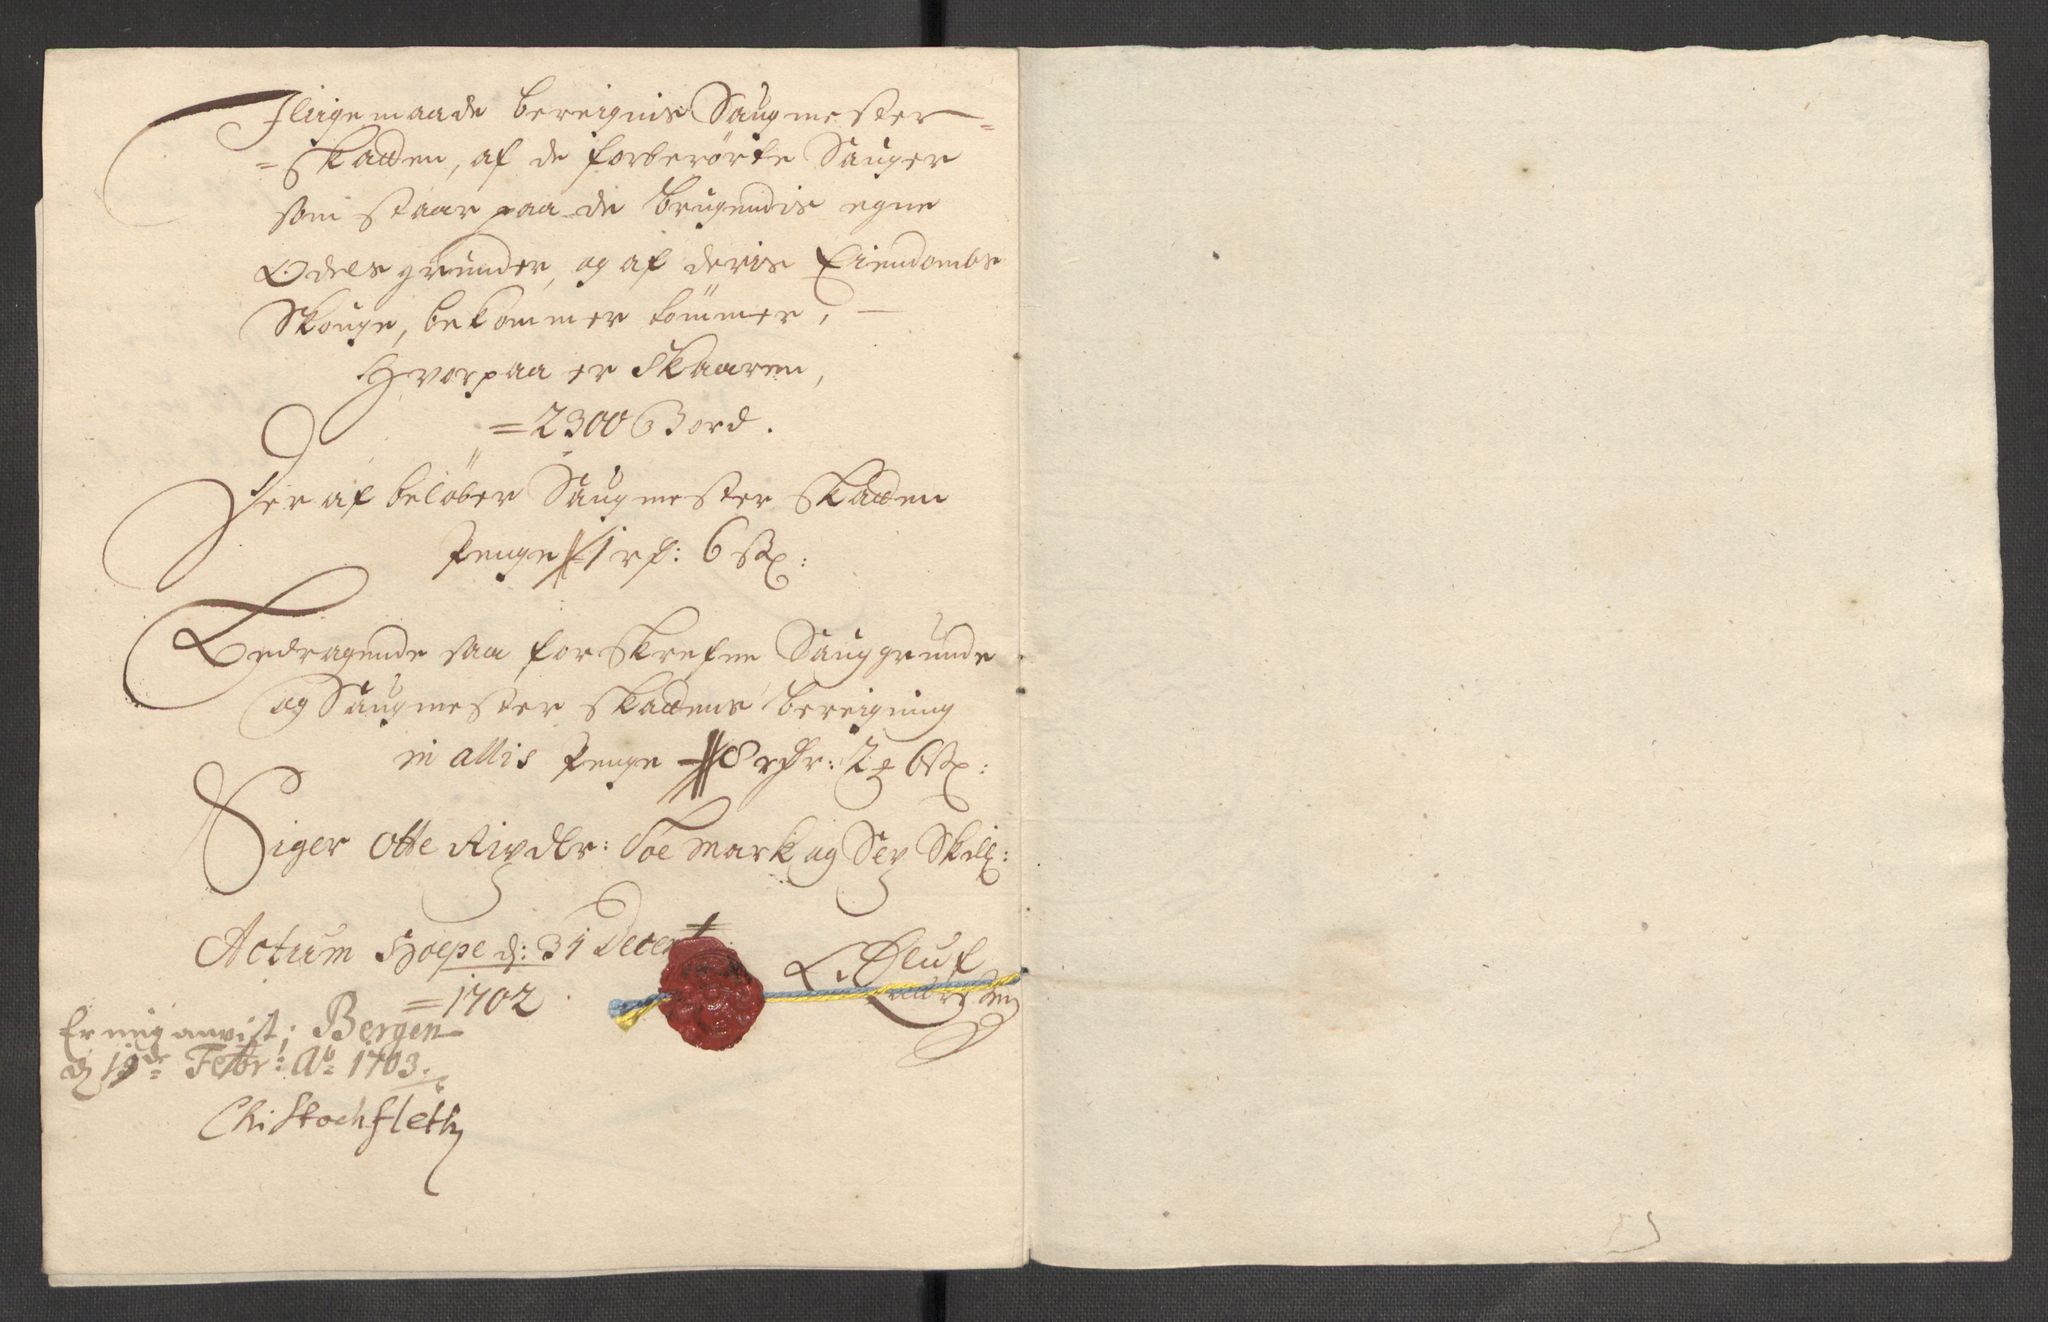 Jligemaade bereignis Saugmester=
=Skatten, af de forberørte Sauger
som staar paa de brugendis egne
Odels grunder, og af deris Eiendombs
Skouge, bekommer tømmer, —
Hvorpaa er Skaaren,
=2300 Bord.
Her af beløber Saugmester Skatten
Penge 1 rd: 6 sk:
Bedragende saa forskrefne Sauggrunde
og Saugmester Skattens bereigning
in allis Penge 8 rdr: 2 6 sk:
Siger Otte Rixdlr: Toe Mark og Sex Skill:
Actum Hoepe d: 31 Decem
=1702
Oluf
Laursen
Er mig anvist, Bergen
d 19de Febr: Ao 1703.
Chr Stochfleth